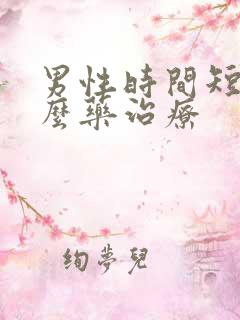 男性時間短
麼藥治療
絢夢兒